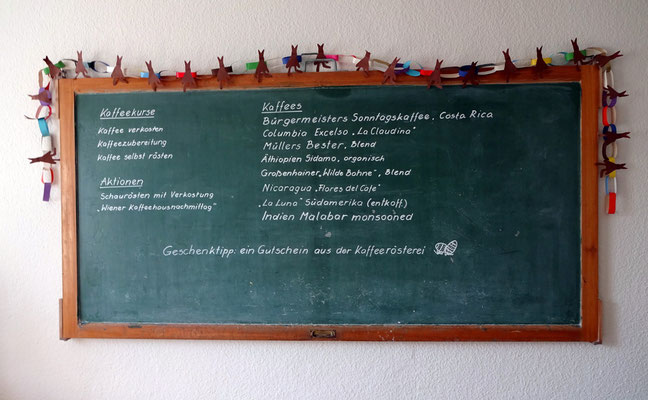 Kaffeekurse
Kaffee verkosten
Kaffeezubereitung
Kaffee selbst rösten
Aktionen
Schaurösten mit Verkostung
„Wiener Kaffeehausnachmittag"
Kaffees
Bürgermeisters Sonntagskaffee, Costa Rica
Columbia Excelso „La Claudina"
Müllers Bester, Blend
Äthiopien Sidamo, organisch
Großenhainer „Wilde Bohne", Blend
Nicaragua „Flores del Cafe"
„La Luna" Südamerika (entkoff.)
Indien Malabar monsooned
Geschenktipp: ein Gutschein aus der Kaffeerösterei